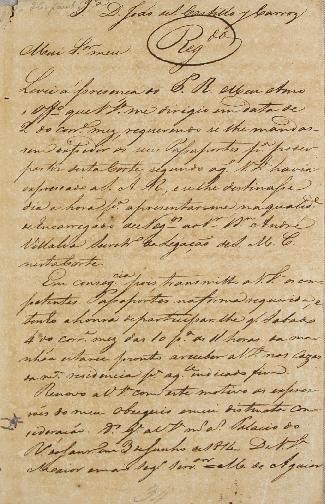 Sr. D. João del Castillo y Carroz
Regda
Meu Sr. meu
Levei á presença de S. A. R. o Meu Amo
o Offo. que V. Sa. me dirigio em data de
2 do corre. mez requerendo se lhe mandas-
sem os seus Passaportes pa. poder
partir desta Corte segundo aqe. V. Sa. havia
expressado a S. A. R., e se lhe destinasse
dia e hora pa. apresentar-me na qualide.
de Encarregado de Negos. ao Sr. Dn. André
Villalba Secreto. da Legação de S. M. C.
nesta Corte.
Em conseqcia. pois transmitto a V. Sa. os com-
petentes Passaportes na forma requerida, e
tenho a honra de participar-lhe q. Sabado
4 do corre. mez das 10 pa. as 11 horas da ma-
nhãa estarei prompto a receber a V. Sa. nas Cazas
da ma. residencia pa. aqle. indicado fim.
Renovo a V. Sa. com este motivo as expres-
soens do meu obsequio e mui distincta con-
sideração. Ds. Ge. a V. Sa. ms. as. Palacio do
Rio de Janro. em 3 de Junho de 1814. De V. Sa.
Maior e mais segro. Servor. M. de Aguiar